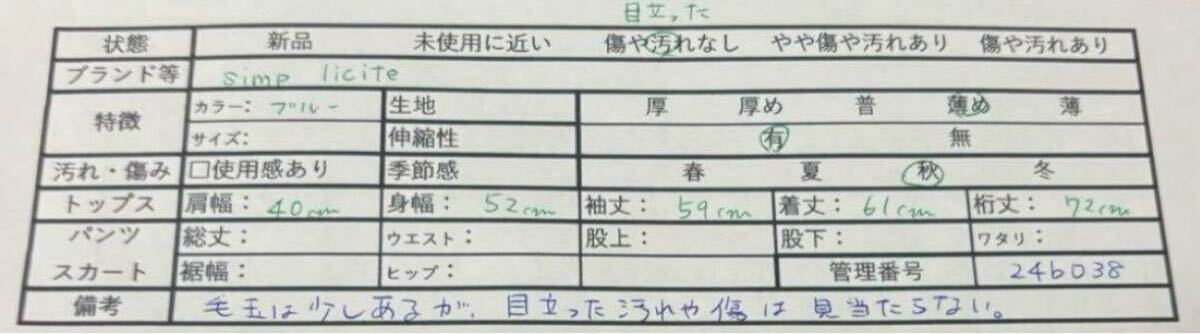 目立った
状態 新品 未使用に近い 傷や汚れなし やや傷や汚れあり 傷や汚れあり
ブランド等 simp licite
特徴 カラー: ブルー 生地 厚 厚め 普 薄め 薄
サイズ: 伸縮性 有 無
汚れ・傷み □使用感あり 季節感 春 夏 秋 冬
トップス 肩幅: 40cm 身幅: 52cm 袖丈: 59cm 着丈: 61cm 裄丈: 72cm
パンツ 総丈: ウエスト: 股上: 股下: ワタリ:
スカート 裾幅: ヒップ: 管理番号 246038
備考 毛玉は少しあるが、目立った汚れや傷は見当たらない。